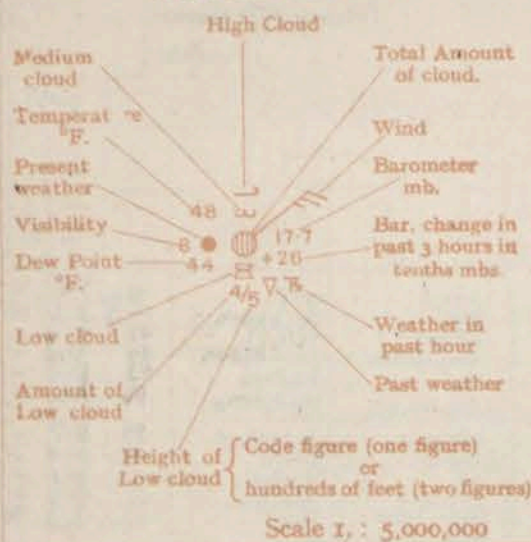 High Cloud
Medium cloud
Total Amount of cloud.
Temperat re °F.
Wind
Present weather
Barometer mb.
48
Visibility
8
17·7
Bar. change in past 3 hours in tenths mbs
Dew Point °F.
44
+26
4/5
Low cloud
Weather in past hour
Amount of Low cloud
Past weather
Height of Low cloud
Code figure (one figure)
or
hundreds of feet (two figures)
Scale 1, : 5,000,000